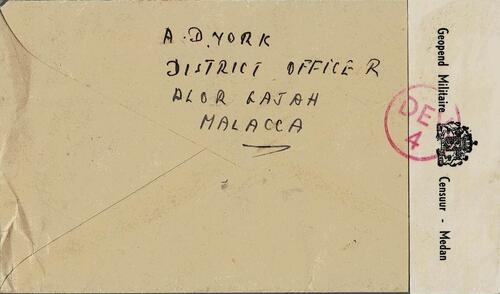 A.D. YORK
DISTRICT OFFICER
ALOR GAJAH
MALACCA
Geopend Militaire Censuur - Medan
DE
4